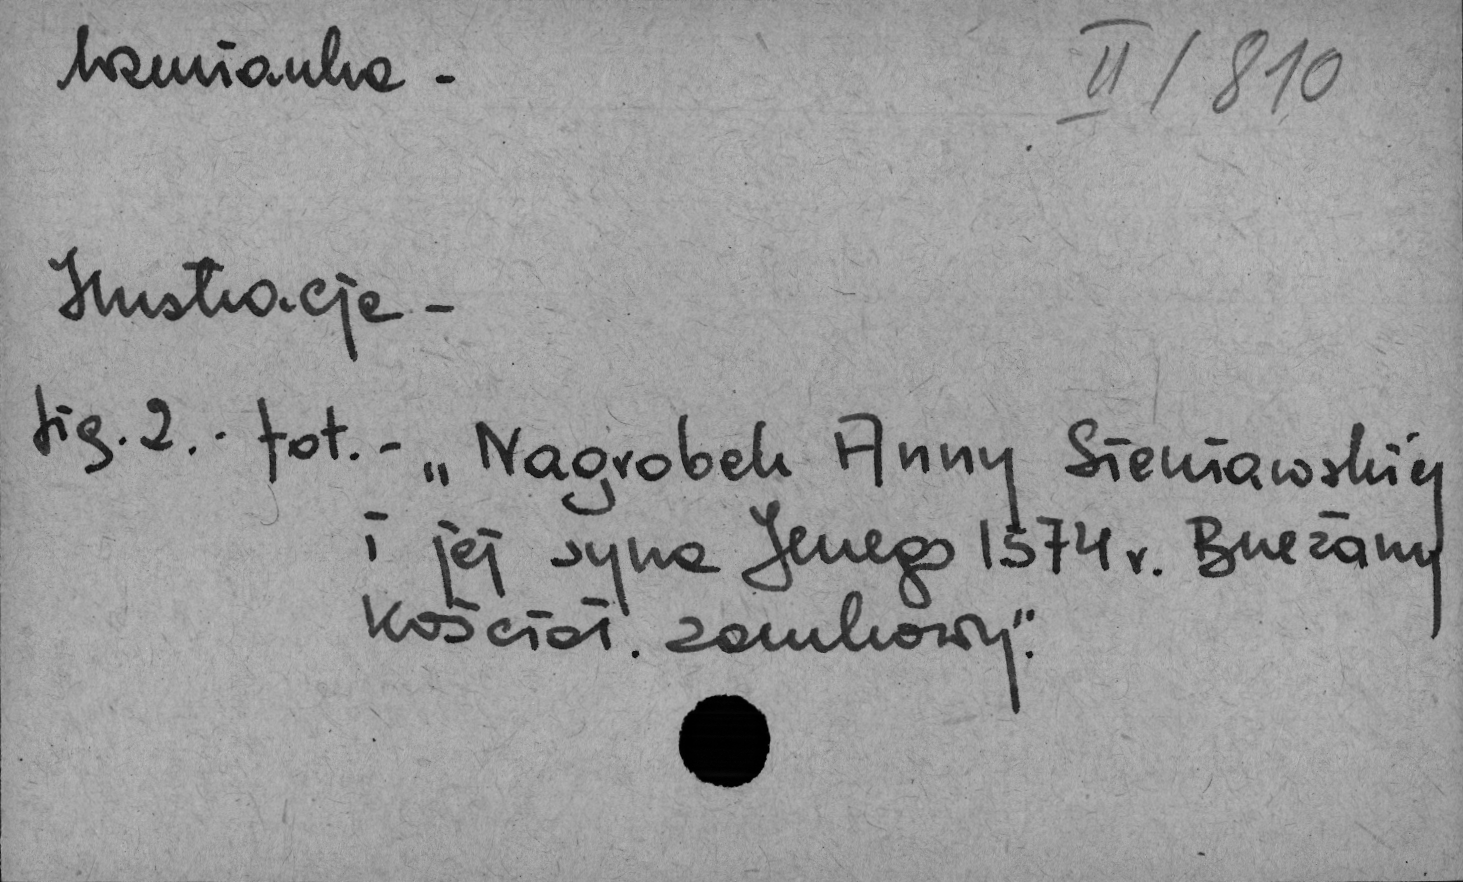 Wzmianka - II/810
Ilustracje -
fig. 2. - fot. - „Nagrobek Anny Sieniawskiej
i jej syna Jerzego 1574 r. Brzeżany
Kościół. zamkowy".